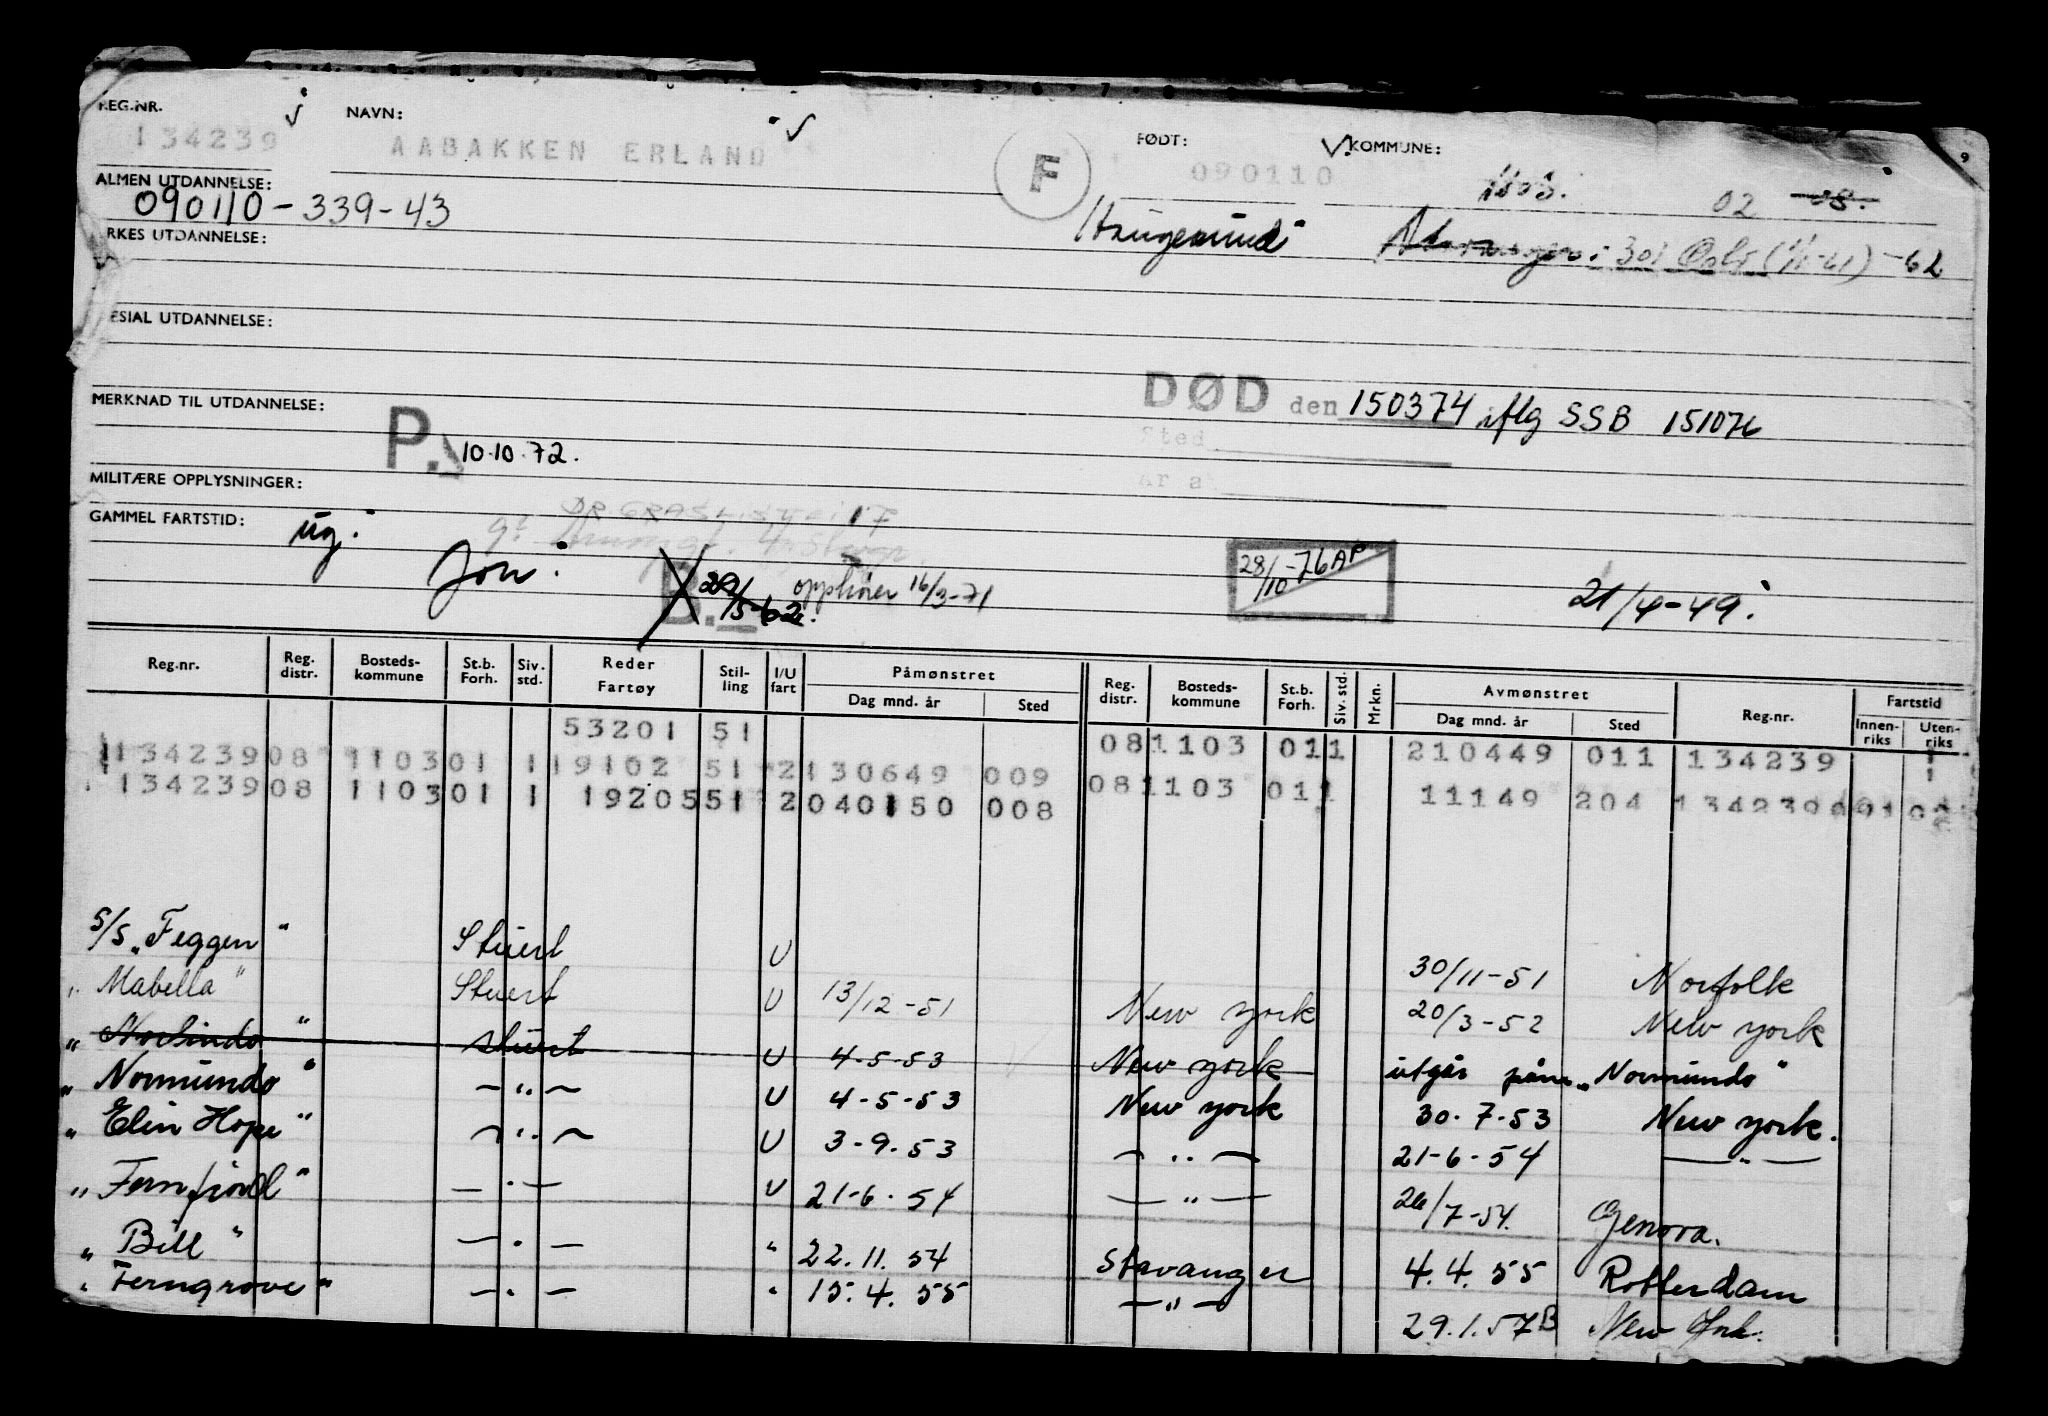 REG.NR. NAVN: FØDT: KOMMUNE: 9
134239 AABAKKEN ERLAND F 090110 02 08.
ALMEN UTDANNELSE:
090110-339-43 Haugesund 301 Oslo (1/1-61) -62
YRKES UTDANNELSE:
SPESIAL UTDANNELSE:
MERKNAD TIL UTDANNELSE: DØD den 150374 iflg SSB 151076
P. 10.10.72. Sted
MILITÆRE OPPLYSNINGER:
GAMMEL FARTSTID: ug.
28/10-76 AP
B. 29/5-62. opphører 16/3-71 21/4-49.
Reg.nr. Reg. distr. Bosteds-kommune St.b. Forh. Siv. std. Reder Fartøy Stil-ling I/U fart Påmønstret Dag mnd. år Sted Reg. distr. Bosteds-kommune St.b. Forh. Siv. std. Mrkn. Avmønstret Dag mnd. år Sted Reg.nr. Fartstid Innen-riks Uten-riks
53201 51 08 1103 01 1 210449 011 134239
134239 08 1103 01 1 19102 51 2 130649 009 08 1103 01 1 11149 204 134239
134239 08 1103 01 1 19205 51 2 040150 008
S/S "Feggen" Stuert U 30/11-51 Norfolk
" Mabella" Stuert U 13/12-51 New York 20/3-52 New York
" Norlindo" Stuert U 4-5-53 New York utgår påm. "Normundo"
" Normundo" -"- U 4-5-53 New York 30.7-53 New York.
" Elin Hope" -"- U 3-9.53 -"- 21-6-54 -"-
" Fernfjord" -"- U 21-6.54 -"- 26/7-54. Genova.
" Bill" -"- " 22.11.54 Stavanger 4.4.55 Rotterdam
" Ferngrove" -"- " 15.4.55 -"- 29.1.57 B New York.